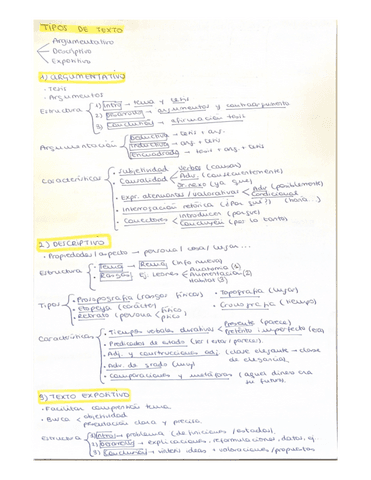 TIPOS DE TEXTO
Argumentativo
Descriptivo
Expositivo
1) ARGUMENTATIVO
- Tesis
- Argumentos
Estructura
1) Intro → tema y tesis
2) Desarrollo → argumentos y contraargumento
3) Conclusión → afirmación tesis
Argumentación
Deductiva → tesis + arg.
Inductiva → arg. + tesis
Encuadrada → tesis + arg. + tesis
Características
• Subjetividad
• Causalidad
Verbos (causar)
Adv. (consecuentemente)
(ya que)
• Expr. atenuantes / valorativas
Adv (posiblemente)
Condicional (haría...)
• Interrogación retórica (¿Por qué?)
• Conectores
Introducen (porque)
Concluyen (por lo tanto)
2) DESCRIPTIVO
• Propiedades / aspecto → persona / cosa / lugar...
Estructura
• Tema → Rema (info nueva)
• Rasgos Ej. leones
Anatomía (1)
Alimentación (2)
Hábitat (3)
Tipos
• Prosopografía (rasgos físicos)
• Etopeya (carácter)
• Retrato (persona
físico
• Topografía (lugar)
• Cronografía (tiempo)
Características
• Tiempos verbales durativos
Presente (parece)
Pretérito imperfecto (era)
• Predicados de estado (ser / estar / parecer)
• Adj. y construcciones adj. (clase elegante → clase
de elegancia)
• Adv. de grado (muy)
• Comparaciones y metáforas (agua dinero era
su futuro)
3) TEXTO EXPOSITIVO
• Facilitar comprensión tema
• Busca
objetividad
presentación clara y precisa
Estructura
1) Intro → problema (definiciones / estados)
2) Desarrollo → explicaciones, reformulaciones, datos, ej.
3) Conclusión → ideas + valoraciones / propuestas